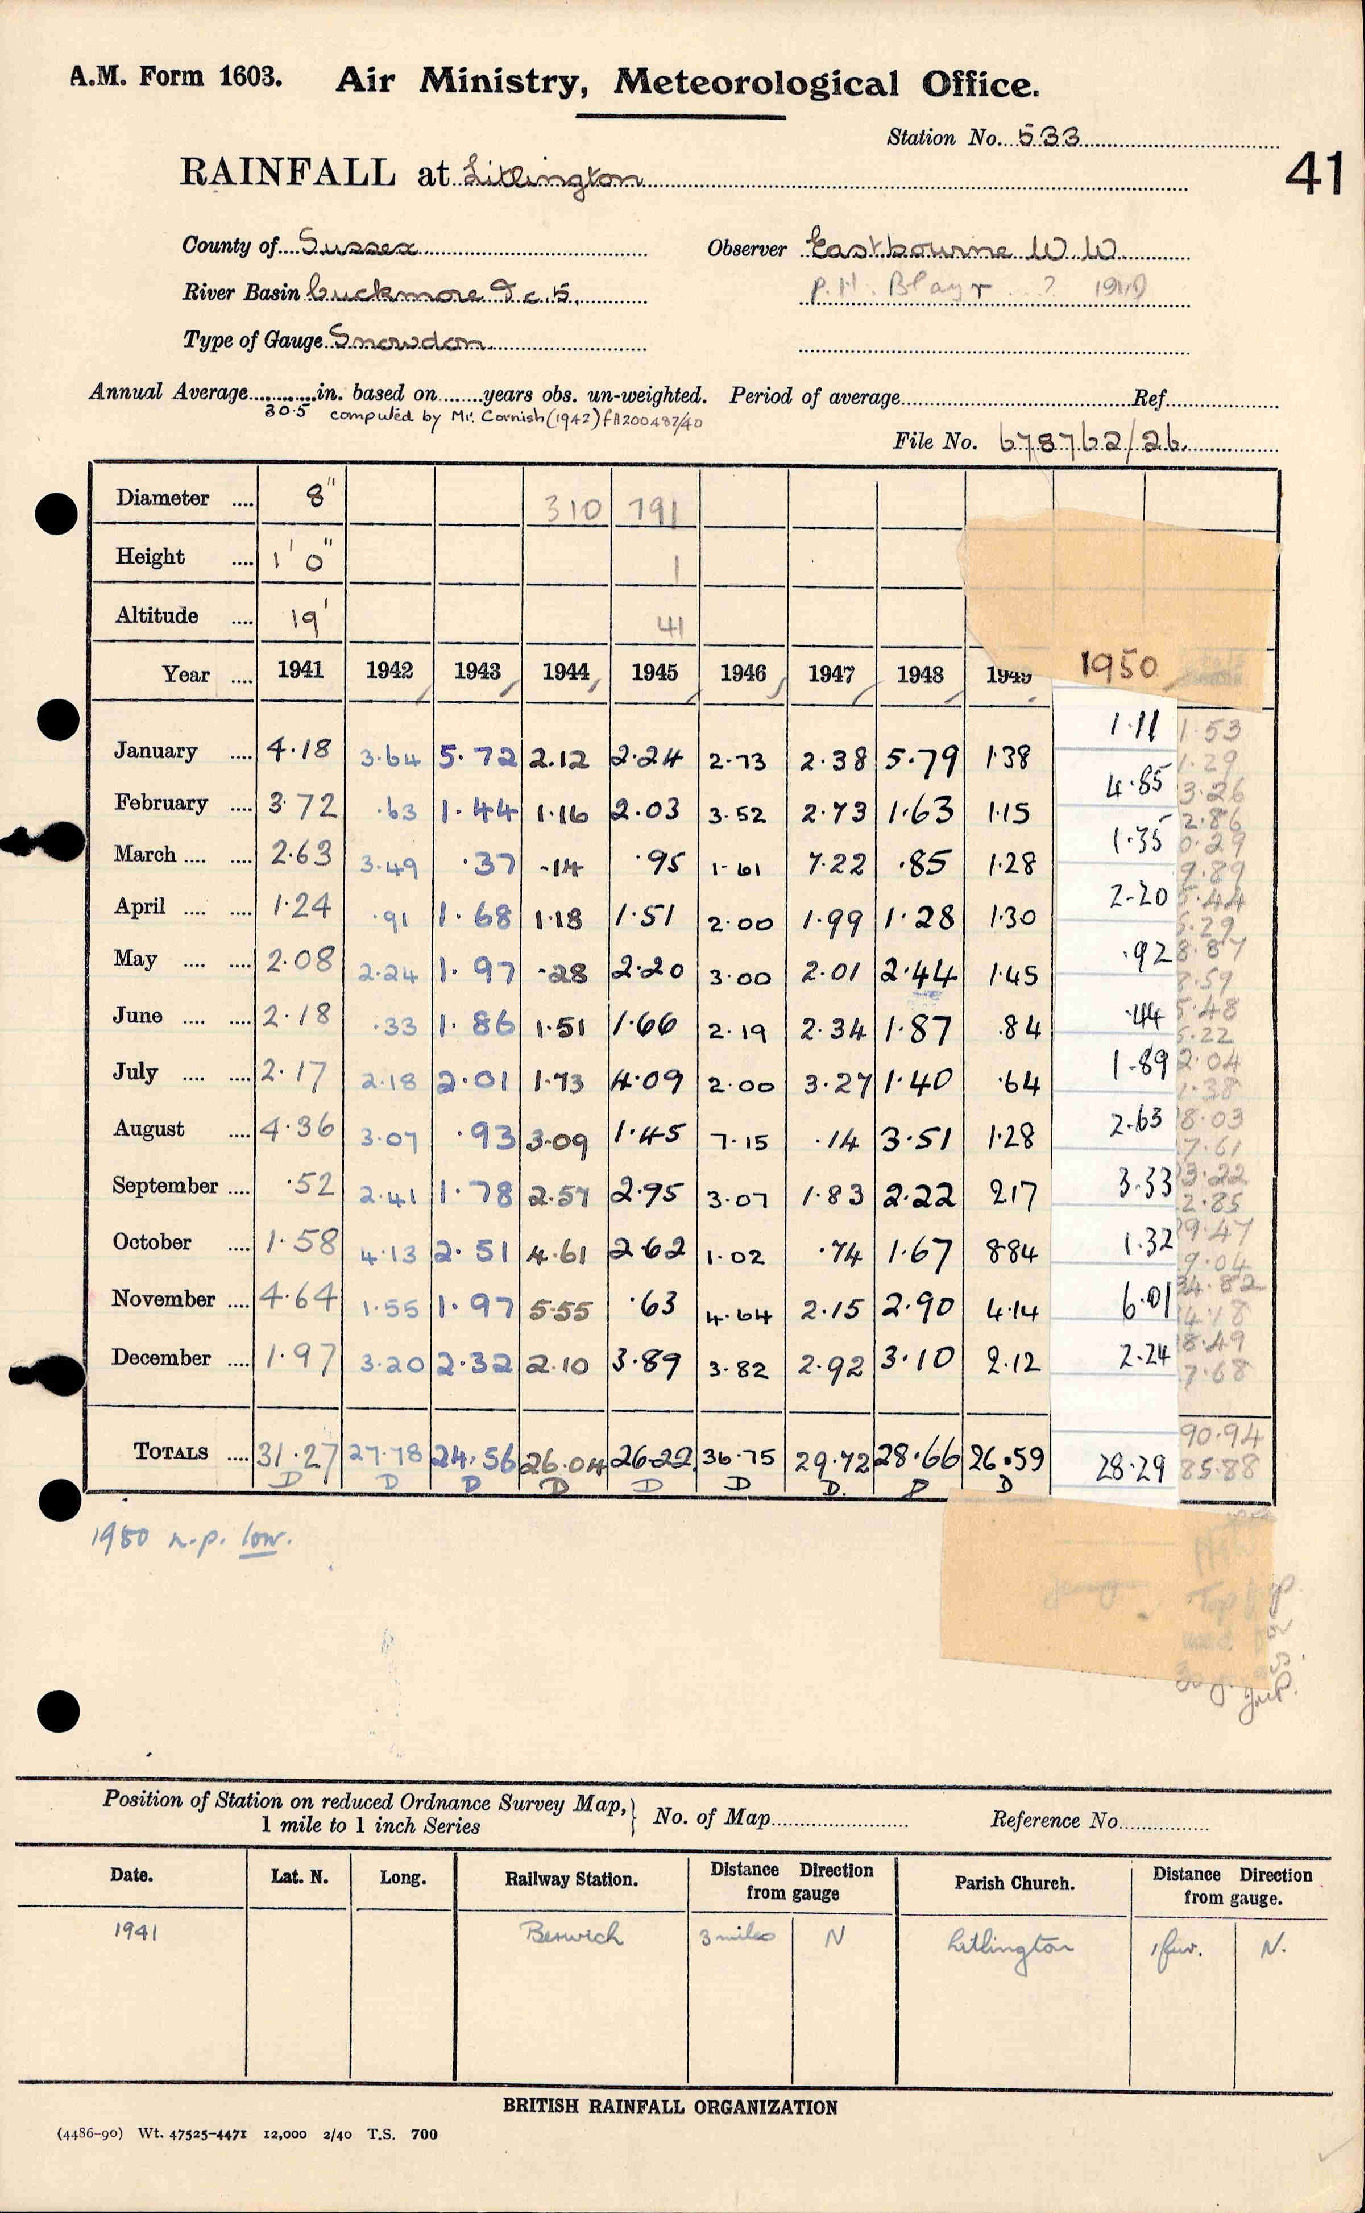 A.M. Form 1603. Air Ministry, Meteorological Office.
Station No. 533
41
RAINFALL at Litlington
County of Sussex Observer Eastbourne W.W.
River Basin Cuckmere &c 5. P.H. 
Type of Gauge Snowdon
Annual Average in. based on years obs. un-weighted. Period of average Ref.
30.5 computed by Mr. Cornish (1942) f A200487/40
File No. 678762/26
Diameter 8" 310 791
Height 1' 0" 1
Altitude 19' 41
Year 1941 1942 1943 1944 1945 1946 1947 1948 1949 1950
January 4.18 3.64 5.72 2.12 2.24 2.73 2.38 5.79 1.38 1.11
February 3.72 .63 1.44 1.16 2.03 3.52 2.73 1.63 1.15 4.85
March 2.63 3.49 .37 .14 .95 1.61 7.22 .85 1.28 1.35
April 1.24 .91 1.68 1.18 1.51 2.00 1.99 1.28 1.30 2.20
May 2.08 2.24 1.97 .28 2.20 3.00 2.01 2.44 1.45 .92
June 2.18 .33 1.86 1.51 1.66 2.19 2.34 1.87 .84 .44
July 2.17 2.18 2.01 1.73 4.09 2.00 3.27 1.40 .64 1.89
August 4.36 3.07 .93 3.09 1.45 7.15 .14 3.51 1.28 2.63
September .52 2.41 1.78 2.57 2.95 3.07 1.83 2.22 2.17 3.33
October 1.58 4.13 2.51 4.61 2.62 1.02 .74 1.67 8.84 1.32
November 4.64 1.55 1.97 5.55 .63 4.64 2.15 2.90 4.14 6.01
December 1.97 3.20 2.32 2.10 3.89 3.82 2.92 3.10 2.12 2.24
TOTALS 31.27 27.78 24.56 26.04 26.22 36.75 29.72 28.66 26.59 28.29
D D D D D D D. D D
1950 n.p. low.
Position of Station on reduced Ordnance Survey Map, 1 mile to 1 inch Series } No. of Map Reference No.
Date. Lat. N. Long. Railway Station. Distance Direction from gauge Parish Church. Distance Direction from gauge.
1941 Berwick 3 miles N Litlington 1 fur. N.
BRITISH RAINFALL ORGANIZATION
(4486-90) Wt. 47525-4471 12,000 2/40 T.S. 700